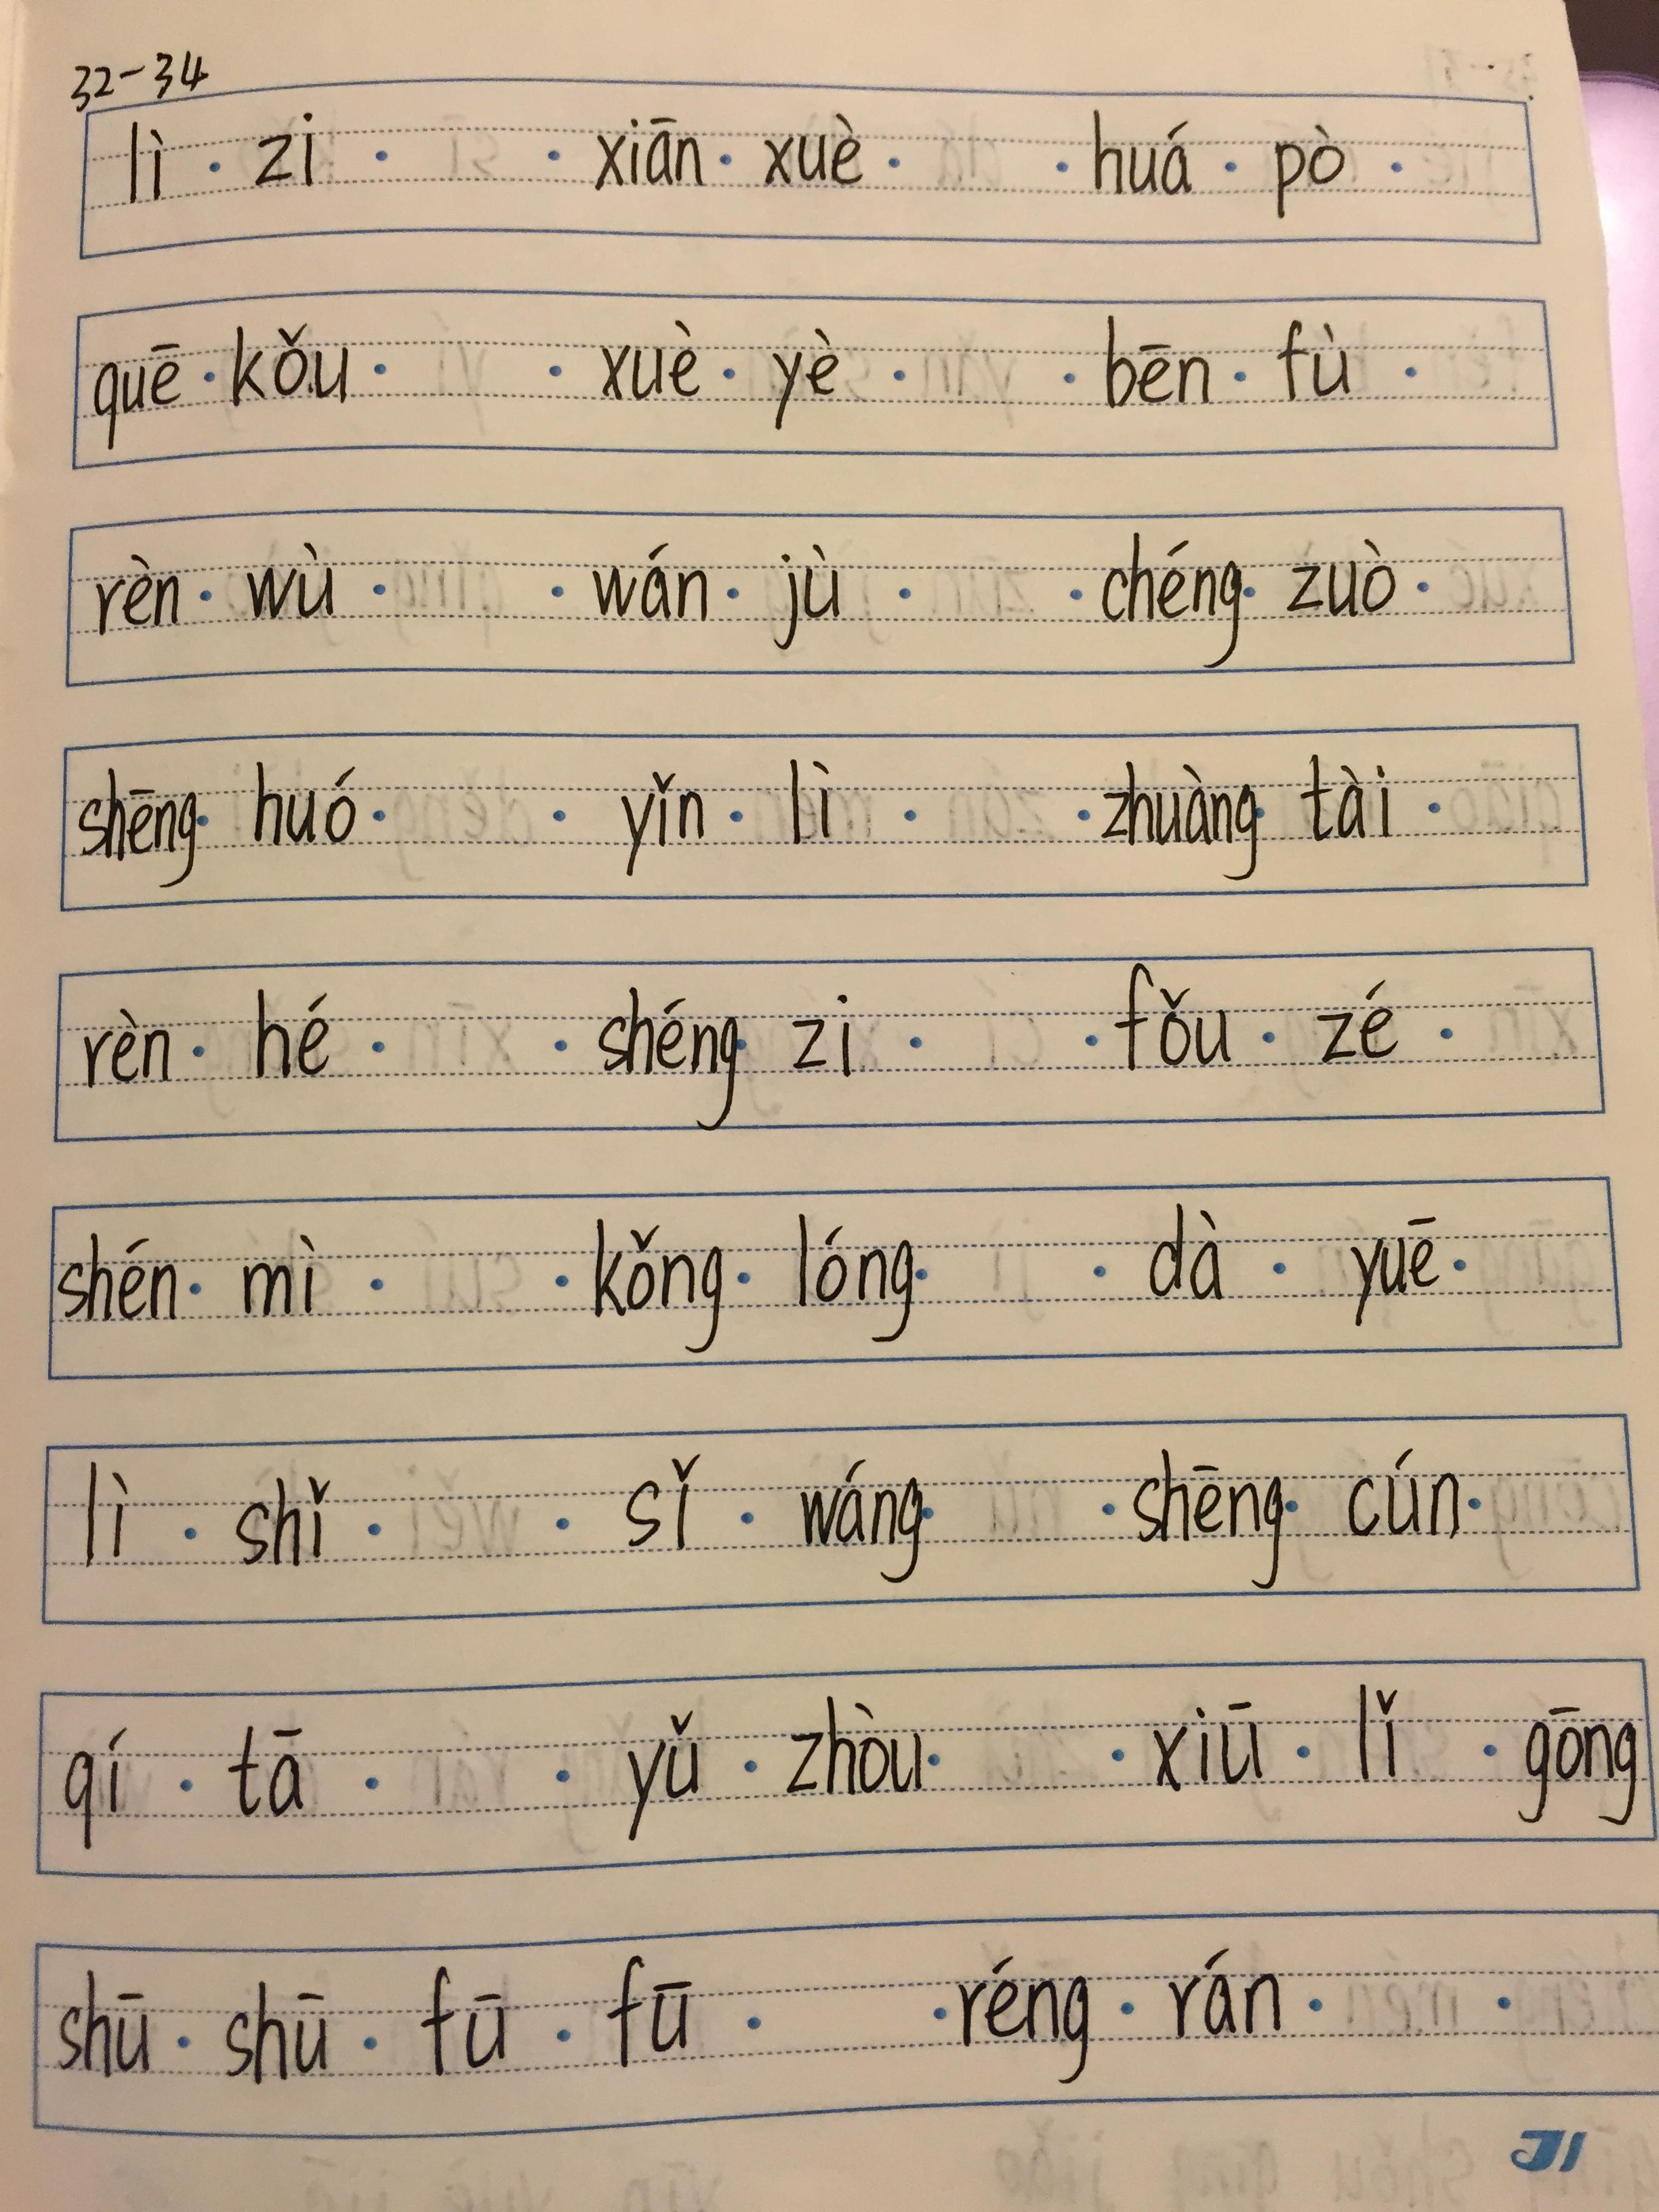 32-34
lì zi xiān xuè huá pò
quē kǒu xuè yè bēn fù
rèn wù wán jù chéng zuò
shēng huó yǐn lì zhuàng tài
rèn hé shéng zi fǒu zé
shén mì kǒng lóng dà yuē
lì shǐ sǐ wáng shēng cún
qí tā yǔ zhòu xiū lǐ gōng
shū shū fū fū réng rán